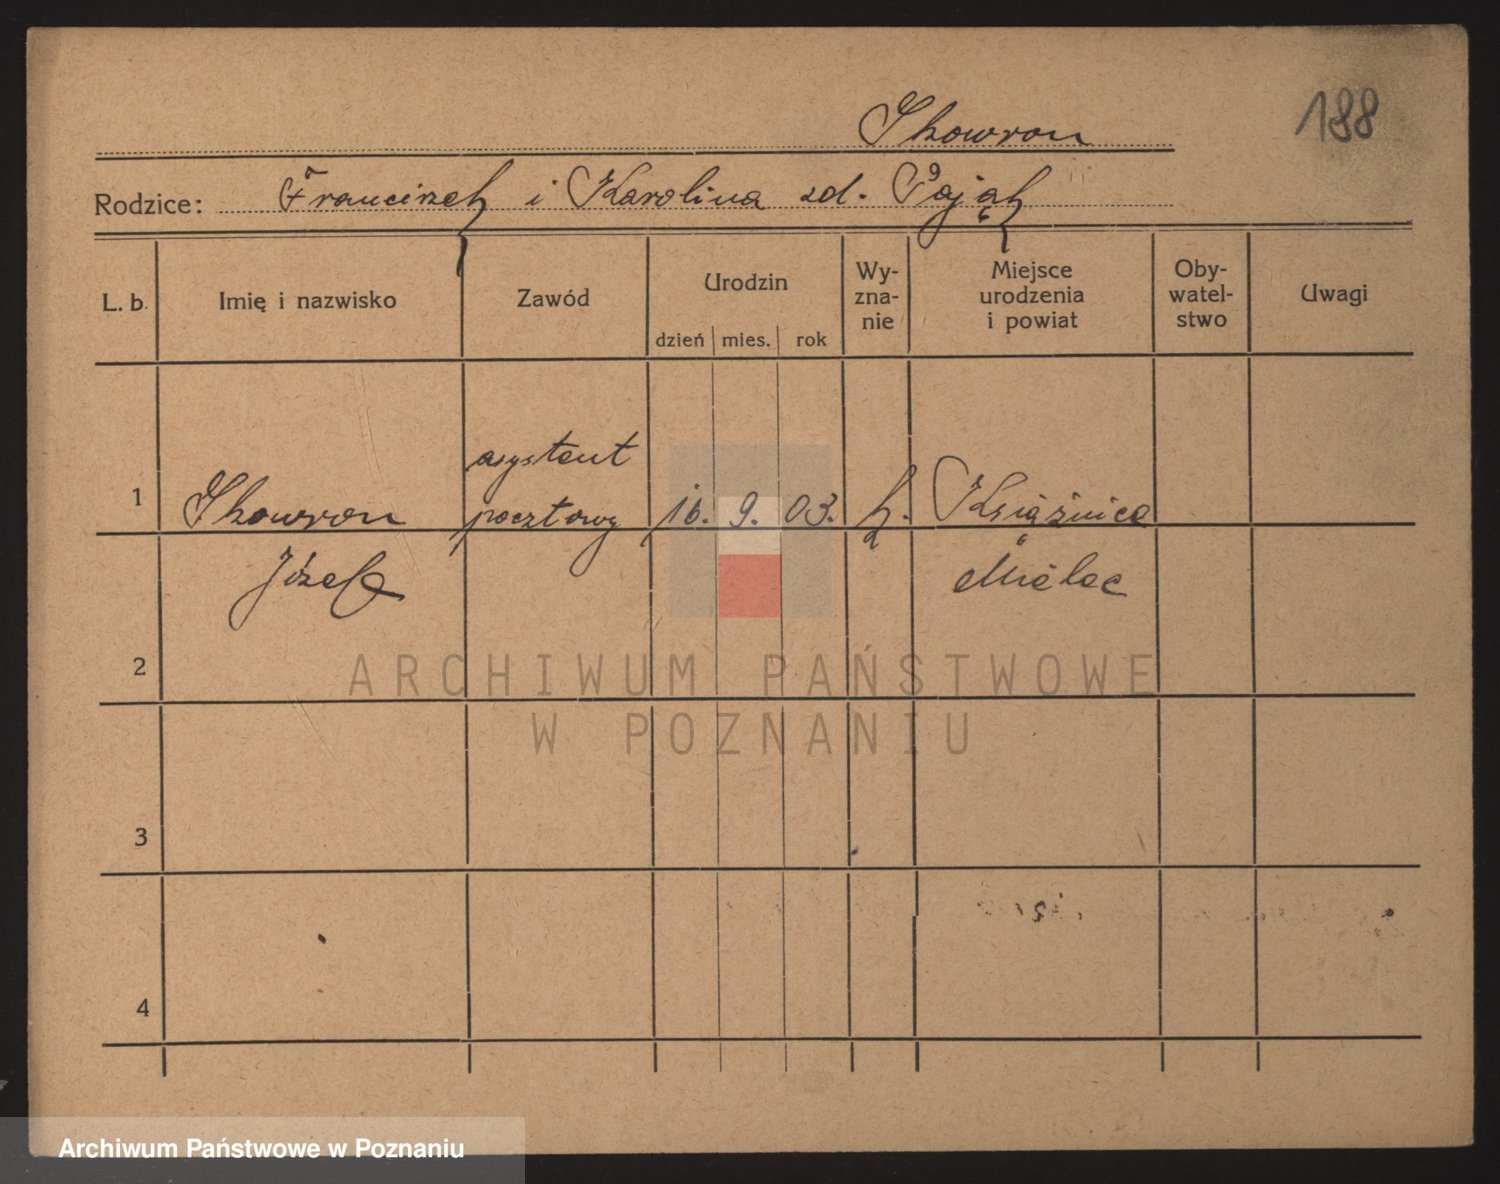 188
Skowron
Rodzice: Franciszek i Karolina zd. Pająk
L. b. Imię i nazwisko Zawód Urodzin dzień mies. rok Wy-zna-nie Miejsce urodzenia i powiat Oby-watel-stwo Uwagi
asystent
1 Skowron pocztowy 16. 9. 03. k. Książnice
Józef Mielec
2
ARCHIWUM PAŃSTWOWE
W POZNANIU
3
4
Archiwum Państwowe w Poznaniu